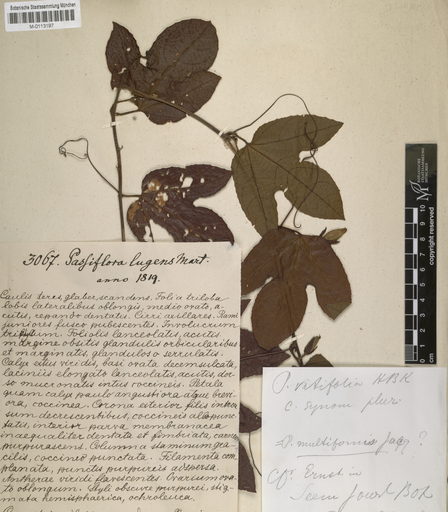 Botanische Staatssammlung München
M-0113197
3067. Passiflora lugens Mart.
anno 1819.
Caulis teres glaber, scandens. Folia triloba
lobis lateralibus oblongis, medio ovato, a-
cutis, repando dentatis. Cirri axillares. Rami
juniores fusco pubescentes. Involucrum
Foliolis lanceolatis, acutis
margine obsitis glandulis orbicularibus
et marginatis, glanduloso serrulatis.
Calyx extus viridis, basi ovata decemsulcata,
laciniis elongato lanceolatis, acutis, dor-
so mucronatis intus coccineis. Petala
quam calyx paulo angustiora atque brevi-
ora, coccinea. Corona exterior filis intror-
sum decrescentibus, coccineis albo punc-
tatis, interior parva membranacea
inaequaliter dentata et fimbriata,
purpurascens. Columna staminum gra-
cilis, coccineo punctata. Filamenta com-
planata, punctis purpureis adspersa.
Antherae viridi flavescentes. Ovarium ova-
to oblongum. Styli obscure purpurei, stig-
mata hemisphaerica, ochroleuca.
P. vitifolia HBK
c. Synon. plur.
=P. multiformis Jacq?
Cf. Ernst in
Seem Journ Bot